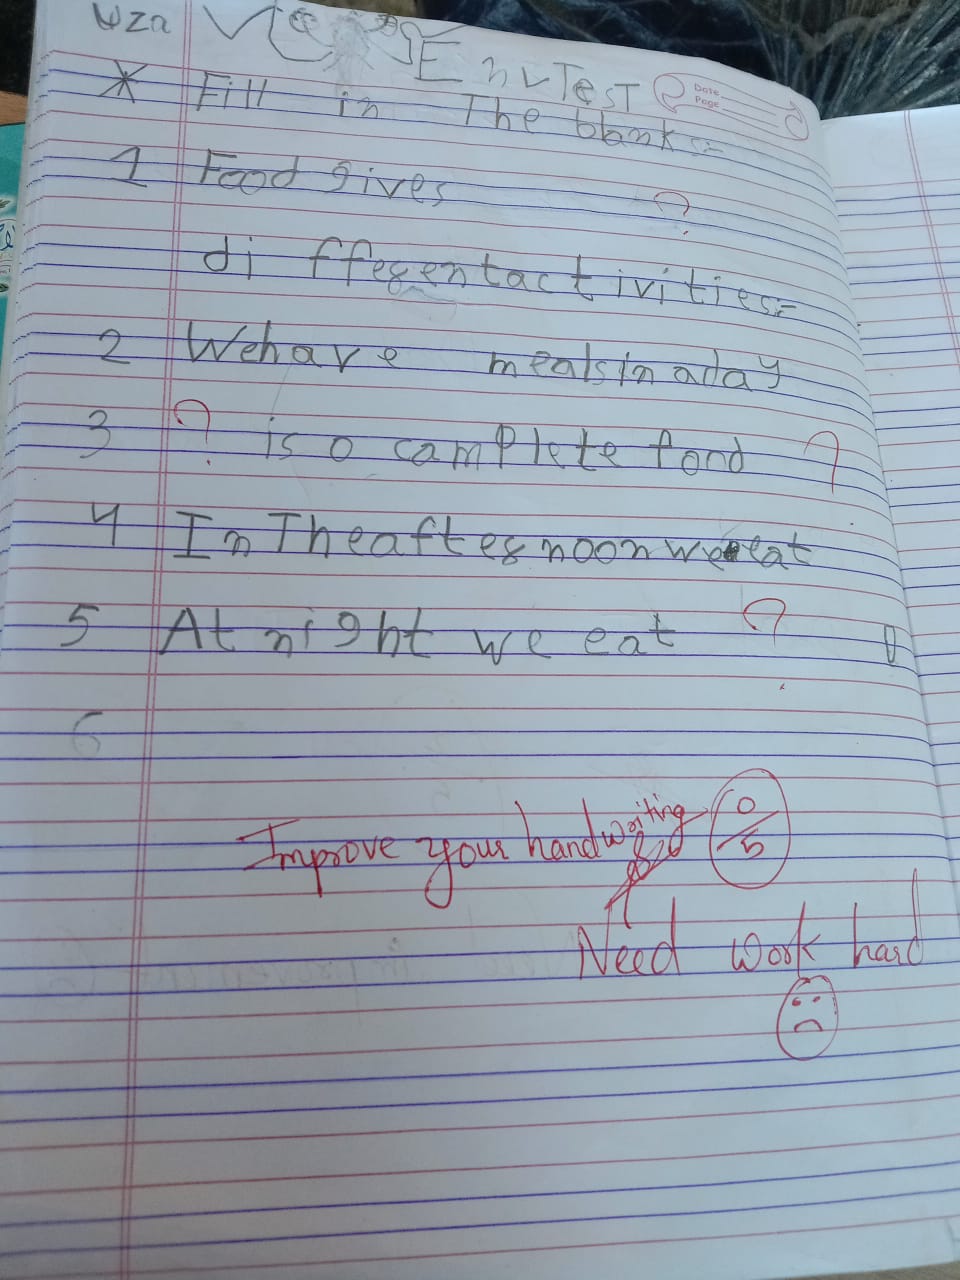 Env Test
Date
Page
* Fill in The blanks:-
1 Food gives ?
di ffesent activities:-
2 We have meals in a day
3 ? is o camplete food ?
4 In The aftesnoon we eat
5 At night we eat ? 0
6
Improve your handwriting 0/5
Need work hard